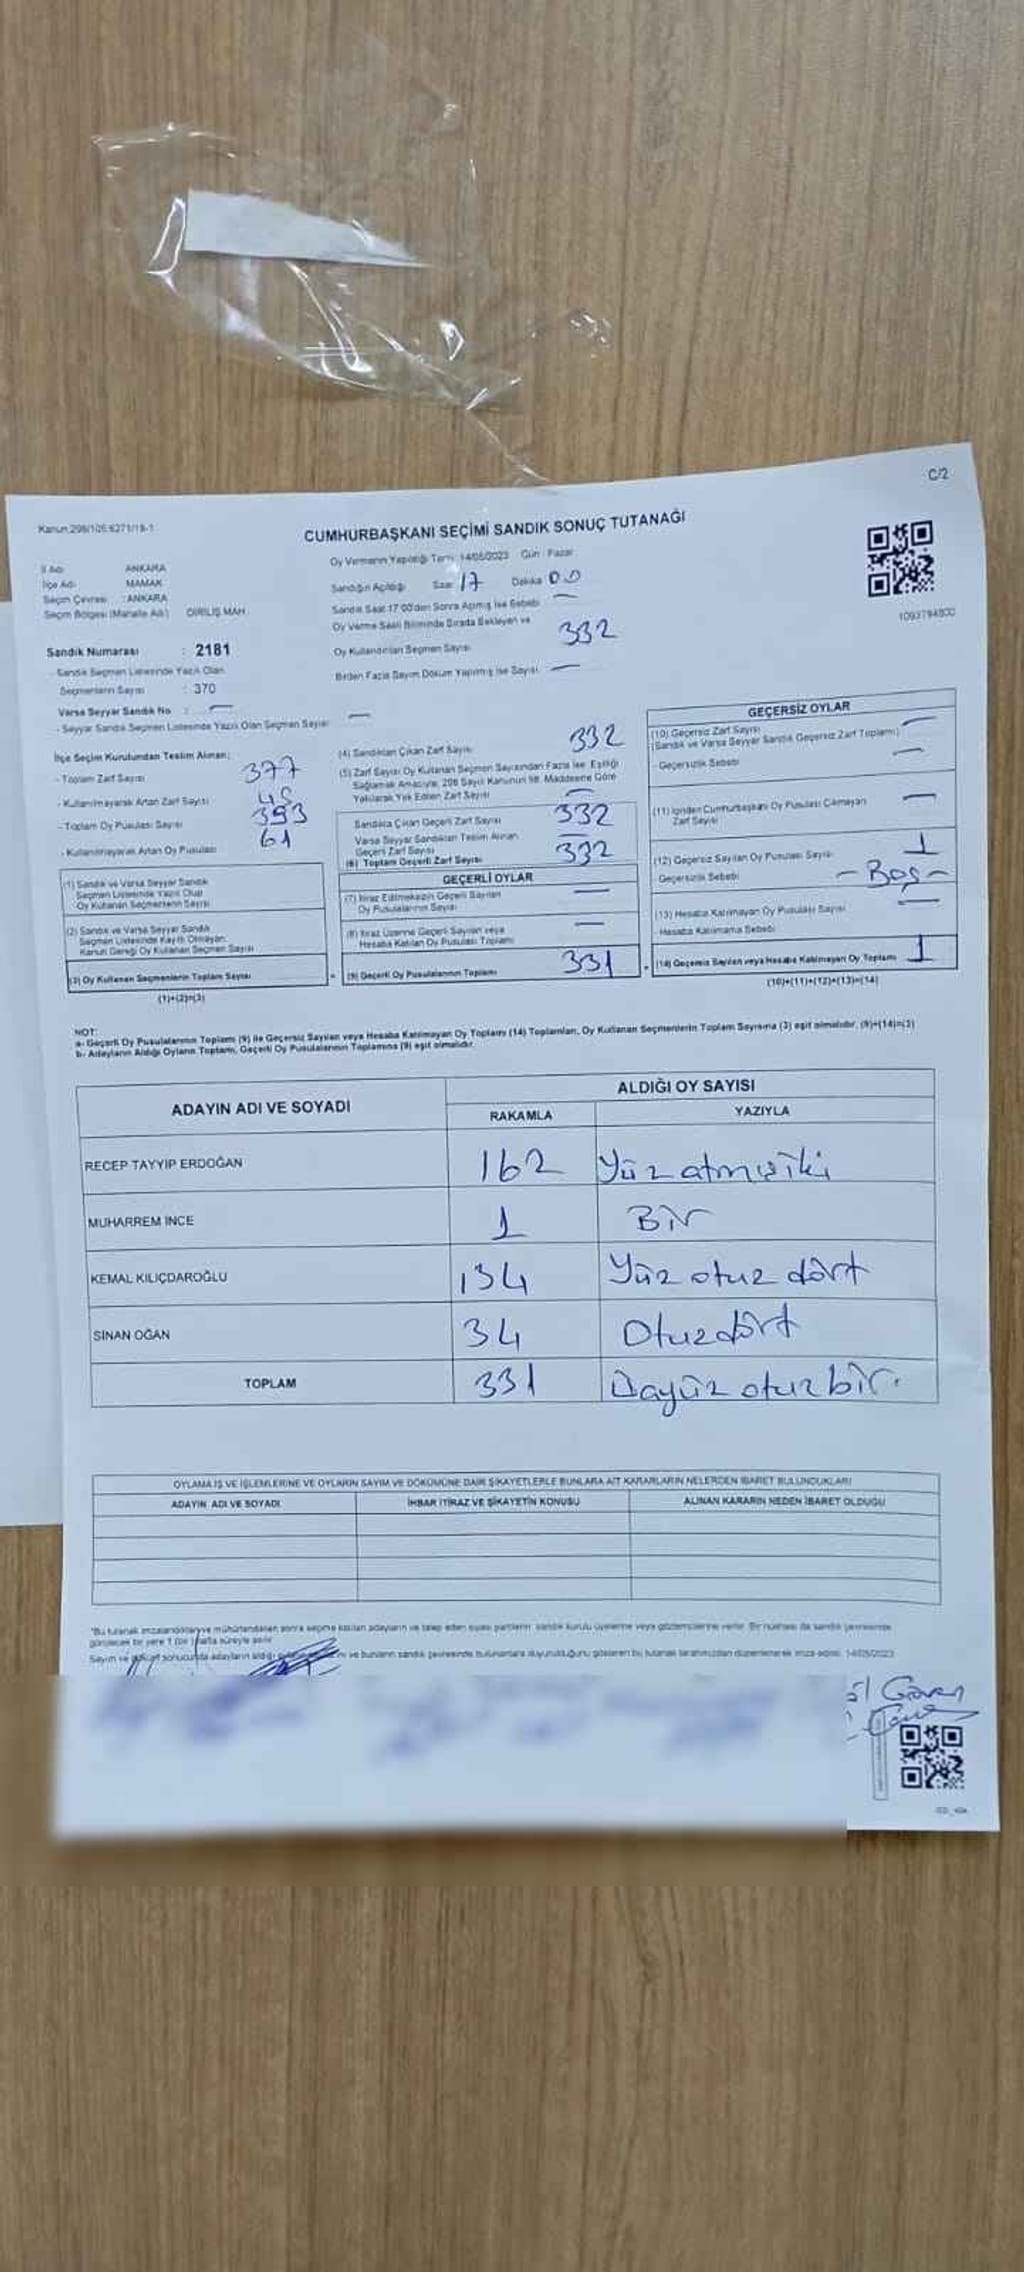 C/2
Kanun:298/105.6271/18-1
CUMHURBAŞKANI SEÇİMİ SANDIK SONUÇ TUTANAĞI
İl Adı ANKARA
İlçe Adı MAMAK
Seçim Çevresi : ANKARA
Seçim Bölgesi (Mahalle Adı) DİRİLİŞ MAH.
Oy Vermenin Yapıldığı Tarih: 14/05/2023 Gün : Pazar
Sandığın Açıldığı Saat 17 Dakika 00
Sandık Saat 17:00'den Sonra Açılmış İse Sebebi —
Oy Verme Saati Bitiminde Sırada Bekleyen ve
Oy Kullandırılan Seçmen Sayısı 332
Birden Fazla Sayım Döküm Yapılmış İse Sayısı —
1093794800
Sandık Numarası : 2181
- Sandık Seçmen Listesinde Yazılı Olan
Seçmenlerin Sayısı : 370
Varsa Seyyar Sandık No : —
- Seyyar Sandık Seçmen Listesinde Yazılı Olan Seçmen Sayısı —
İlçe Seçim Kurulundan Teslim Alınan;
- Toplam Zarf Sayısı 377
- Kullanılmayarak Artan Zarf Sayısı 45
- Toplam Oy Pusulası Sayısı 393
- Kullanılmayarak Artan Oy Pusulası 61
(1) Sandık ve Varsa Seyyar Sandık
Seçmen Listesinde Yazılı Olup
Oy Kullanan Seçmenlerin Sayısı
(2) Sandık ve Varsa Seyyar Sandık
Seçmen Listesinde Kayıtlı Olmayan,
Kanun Gereği Oy Kullanan Seçmen Sayısı
(3) Oy Kullanan Seçmenlerin Toplam Sayısı
(1)+(2)=(3)
(4) Sandıktan Çıkan Zarf Sayısı 332
(5) Zarf Sayısı Oy Kullanan Seçmen Sayısından Fazla İse, Eşitliği
Sağlamak Amacıyla, 298 Sayılı Kanunun 98. Maddesine Göre
Yakılarak Yok Edilen Zarf Sayısı —
Sandıkta Çıkan Geçerli Zarf Sayısı 332
Varsa Seyyar Sandıktan Teslim Alınan
Geçerli Zarf Sayısı —
(6) Toplam Geçerli Zarf Sayısı 332
GEÇERLİ OYLAR
(7) İtiraz Edilmeksizin Geçerli Sayılan
Oy Pusulalarının Sayısı —
(8) İtiraz Üzerine Geçerli Sayılan veya
Hesaba Katılan Oy Pusulası Toplamı —
= (9) Geçerli Oy Pusulalarının Toplamı 331
GEÇERSİZ OYLAR
(10) Geçersiz Zarf Sayısı
(Sandık ve Varsa Seyyar Sandık Geçersiz Zarf Toplamı) —
- Geçersizlik Sebebi —
(11) İçinden Cumhurbaşkanı Oy Pusulası Çıkmayan
Zarf Sayısı —
(12) Geçersiz Sayılan Oy Pusulası Sayısı 1
Geçersizlik Sebebi - Boş -
(13) Hesaba Katılmayan Oy Pusulası Sayısı —
- Hesaba Katılmama Sebebi
+ (14) Geçersiz Sayılan veya Hesaba Katılmayan Oy Toplamı 1
(10)+(11)+(12)+(13)=(14)
NOT:
a- Geçerli Oy Pusulalarının Toplamı (9) ile Geçersiz Sayılan veya Hesaba Katılmayan Oy Toplamı (14) Toplamları, Oy Kullanan Seçmenlerin Toplam Sayısına (3) eşit olmalıdır. (9)+(14)=(3)
b- Adayların Aldığı Oyların Toplamı, Geçerli Oy Pusulalarının Toplamına (9) eşit olmalıdır.
ADAYIN ADI VE SOYADI ALDIĞI OY SAYISI
RAKAMLA YAZIYLA
RECEP TAYYİP ERDOĞAN 162 Yüz atmış iki
MUHARREM İNCE 1 Bir
KEMAL KILIÇDAROĞLU 134 Yüz otuz dört
SİNAN OĞAN 34 Otuzdört
TOPLAM 331 Üçyüz otuz bir.
OYLAMA İŞ VE İŞLEMLERİNE VE OYLARIN SAYIM VE DÖKÜMÜNE DAİR ŞİKAYETLERLE BUNLARA AİT KARARLARIN NELERDEN İBARET BULUNDUKLARI
ADAYIN ADI VE SOYADI İHBAR İTİRAZ VE ŞİKAYETİN KONUSU ALINAN KARARIN NEDEN İBARET OLDUĞU
*Bu tutanak imzalandıktan ve mühürlendikten sonra seçime katılan adayların ve talep eden siyasi partilerin sandık kurulu üyelerine veya gözlemcilerine verilir. Bir nüshası da sandık çevresinde
görülecek bir yere 1 (bir) hafta süreyle asılır.
Sayım ve döküm sonucunda adayların aldığı ve bunların sandık çevresinde bulunanlara duyurulduğunu gösteren bu tutanak tarafımızdan düzenlenerek imza edildi. 14/05/2023